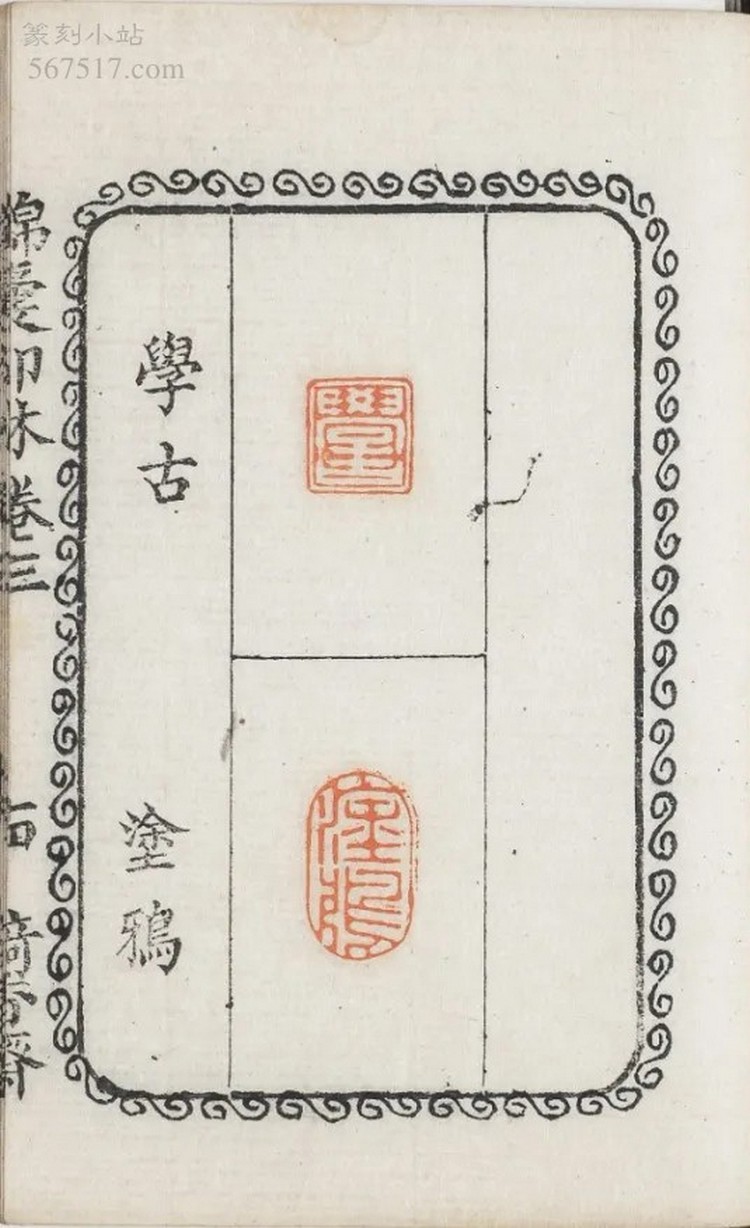 篆刻小站
567517.com
學古
塗鴉
錦囊印林卷三